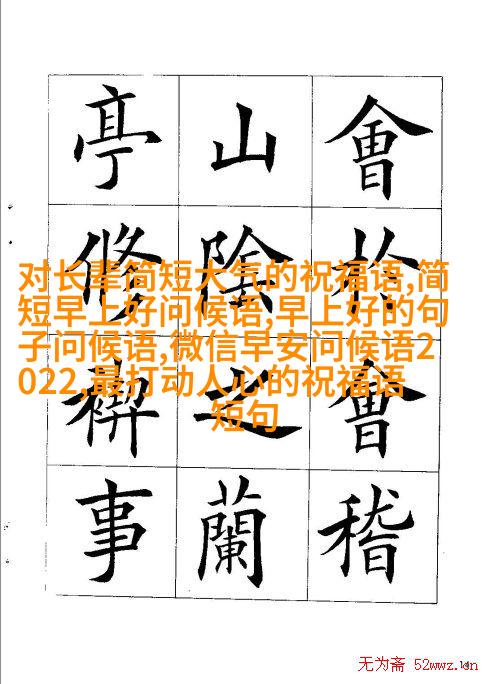 會於會稽
山陰之蘭
亭脩禊事
对长辈简短大气的祝福语,简
短早上好问候语,早上好的句
子问候语,微信早安问候语2
022,最打动人心的祝福语
短句
无为斋 52wwz.cn